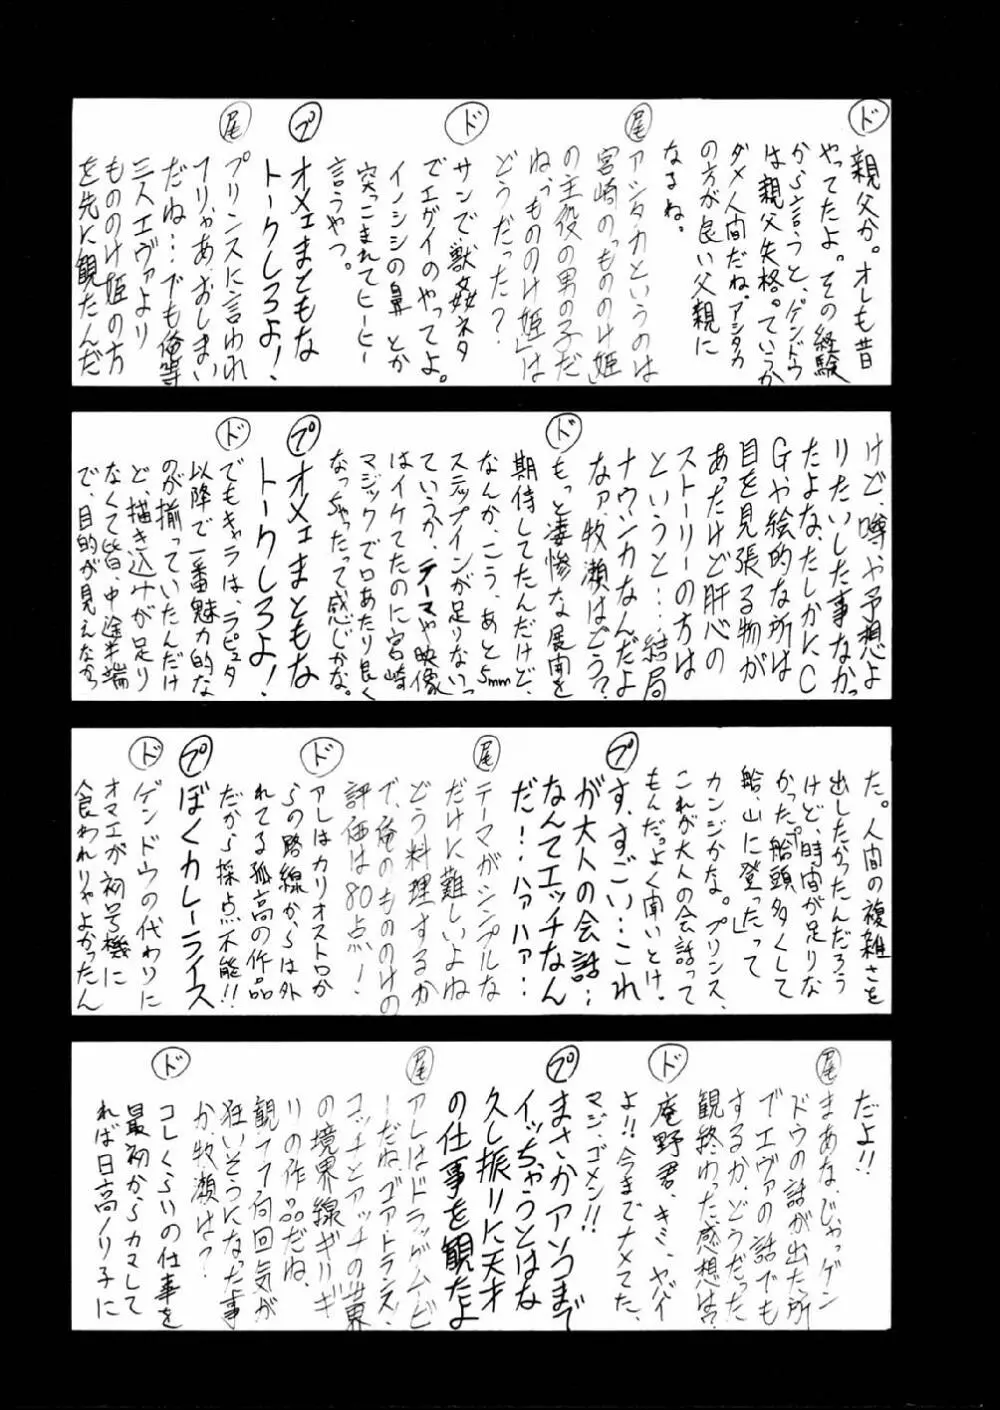 ド
親父か。オレも昔
やってたよ。その経験
から言うと、ゲンドウ
は親父失格。ていうか
ダメ人間だね。アシタカ
の方が良い父親に
なるね。
尾
アシタカというのは
宮崎の「もののけ姫」
の主役の男の子だ
ね。「もののけ姫」は
どうだった?
ド
サンで獣姦ネタ
でエグイのやってよ。
イノシシの鼻とか
突っこまれてヒーヒー
言うやつ。
プ
オメェまともな
トークしろよ!
尾
プリンスに言われ
フリャあ、おしまい
だね…でも俺等
三人エヴァより
もののけ姫の方
を先に観たんだ
けど、噂や予想よ
りたいした事なかっ
たよな。たしかにC
G.や絵的な所は
目を見張る物が
あったけど肝心の
ストーリーの方は
というと…結局
ナウシカなんだよ
なァ。牧瀬はどう?
ド
もっと凄惨な展開を
期待してたんだけど、
なんか、こう、あと5mm
ステップインが足りないっ
ていうか、テーマや映像
はイケてたのに宮崎
マジックで口あたり良く
なっちゃったって感じかな。
プ
オメェまともな
トークしろよ!
ド
でもキャラは、ラピュタ
以降で一番魅力的な
のが揃っていたんだけ
ど、描き込みが足り
なくて皆、中途半端
で、目的が見えなかっ
た。人間の複雑さを
出したかったんだろう
けど、時間が足りな
かった。「船頭多くして
船、山に登った」って
カンジかな。プリンス、
これが大人の会話って
もんだっよく聞いとけ。
プ
す、すごい…これ
が大人の会話…
なんてエッチなん
だ!…ハァハァ…
尾
テーマがシンプルな
だけに難しいよね
どう料理するか
で、俺のもののけの
評価は80点!
ド
アレはカリオストロか
らの路線からは外
れてる孤高の作品
だから採点不能!!
プ
ぼくカレーライス
ド
ゲンドウの代わりに
オマエが初号機に
食われりゃよかったん
だよ!!
尾
まあな、じゃっゲン
ドウの話が出た所
でエヴァの話でも
するか、どうだった
観終わった感想は?
ド
庵野君、きミ、ヤバイ
よ!!今までナメてた、
マジ、ゴメン!!
プ
まさかアソコまで
イッちゃうとはな
久し振りに天才
の仕事を観たよ
尾
アレはドラッグムービ
ーだね、ゴアトランス、
コッチとアッチの世界
の境界線ギリギ
リの作品だね。
観テテ何回気が
狂いそうになった事
か、牧瀬は?
ド
コレくらいの仕事を
最初からカマして
れば日高ノリ子に